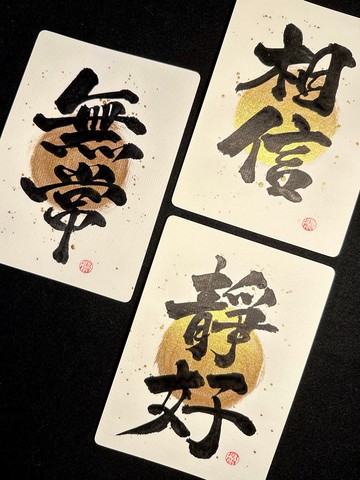 無常
相信
靜好